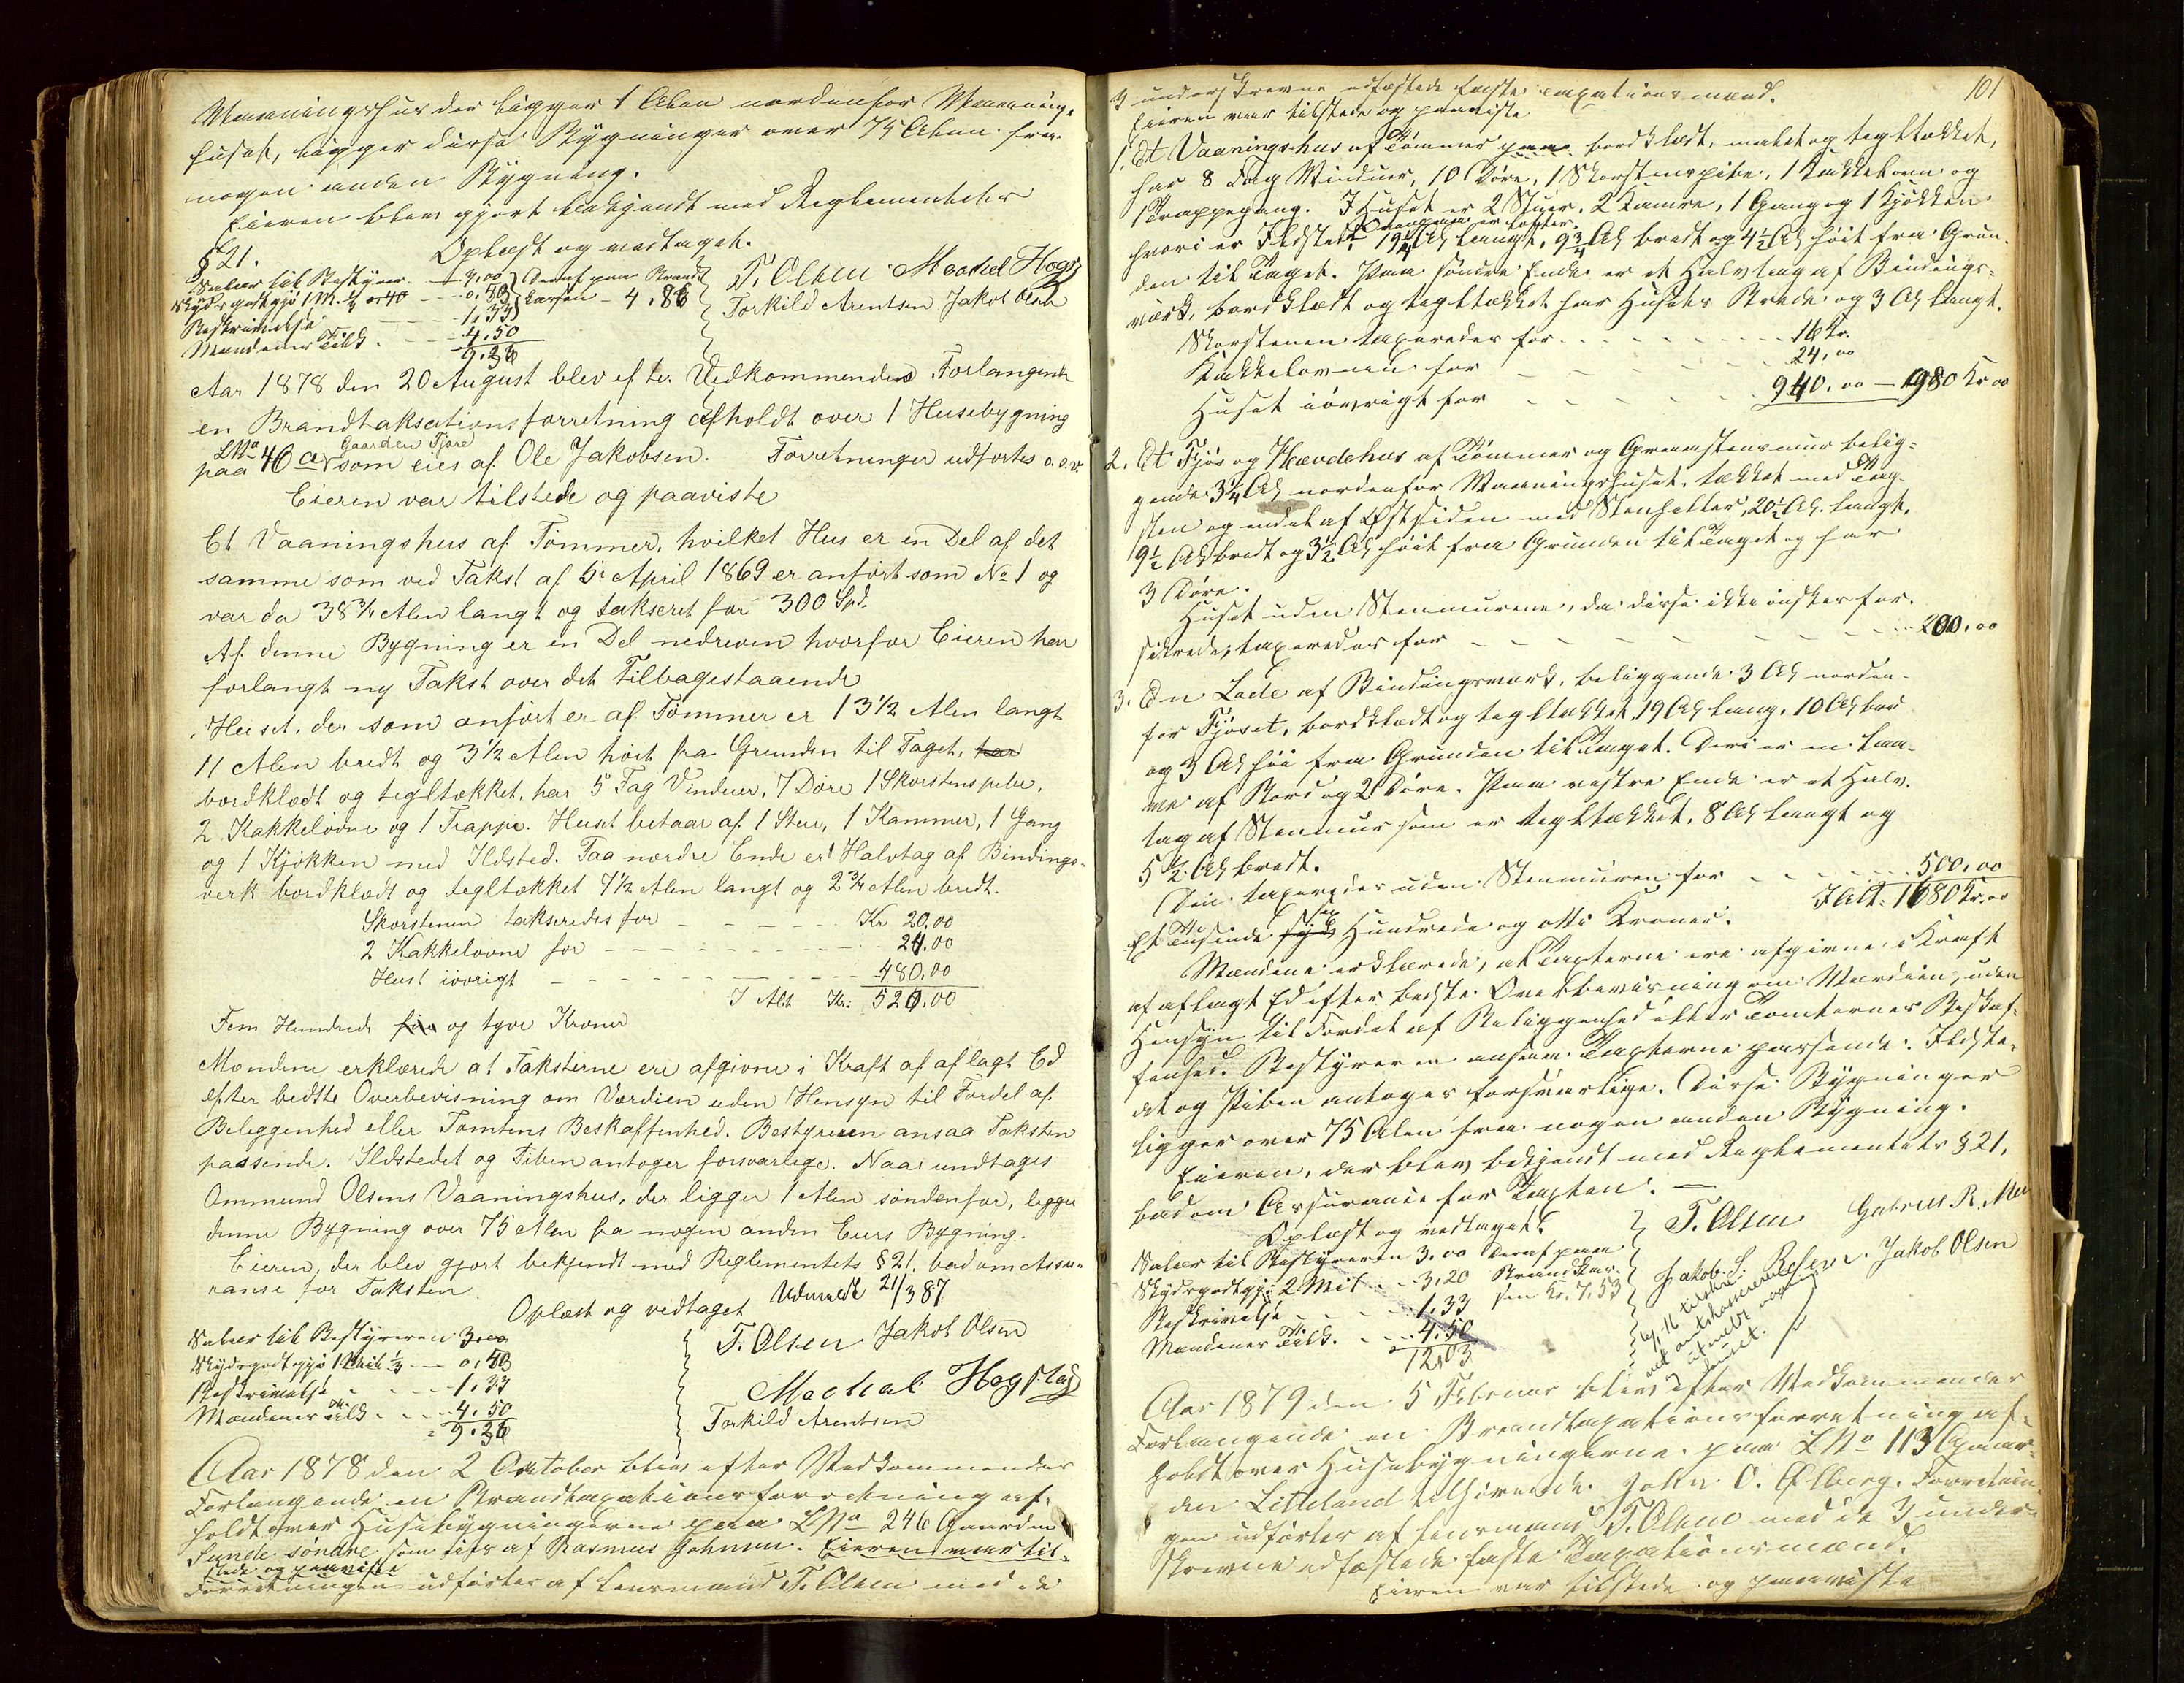 Vaaningshus der ligger 1 Alen nordenfor Vaanings-
huset, ligger disse Bygninger over 75 Alen fra
nogen anden Bygning.
Eieren blev gjort bekjendt med Reglementets
§ 21. Oplæst og vedtaget.
Salær til Bestyrer 3,00 Deraf paa Brand
Skydsgodtgj. 1 M. 0,43 kassen - 4,83
Beskrivelse 1,33
Mændenes Tilk. 4,50
9,26
T. Olsen Machal Hog
Torkild Arentsen Jakob Olsen
Aar 1878 den 20 August blev efter Vedkommendes Forlangende
en Brandtaksationsforretning afholdt over 1 Husebygning
paa LNo 40 a Gaarden Tjore som eies af Ole Jakobsen. Forretninger udførtes o.s.v.
Eieren var tilstede og paaviste
Et Vaaningshus af Tømmer, hvilket Hus er en Del af det
samme som ved Takst af 5 April 1869 er anført som No 1 og
var da 38 3/4 Alen langt og takseret for 300 Spd.
Af denne Bygning er en Del nedreven hvorfor Eieren har
forlangt ny Takst over det Tilbagestaaende
Huset, der som anført er af Tømmer er 13 1/2 Alen langt
11 Alen bredt og 3 1/2 Alen høit fra Grunden til Taget, har
bordklædt og tegltækket, har 5 Fag Vinduer, 7 Døre 1 Skorstenspibe,
2 Kakkelovne og 1 Trappe. Huset bestaar af 1 Stue, 1 Kammer, 1 Gang
og 1 Kjøkken med Ildsted. Paa nordre Ende er 1 Halvtag af Bindings-
verk bordklædt og tegltækket 7 1/2 Alen langt og 2 3/4 Alen bredt.
Skorstenen takseredes for Kr 20,00
2 Kakkelovne for 24,00
Huset iøvrigt 480,00
I Alt Kr. 520,00
Fem Hundrede fire og tyve Kroner
Mændene erklærede at Taksterne ere afgivne i Kraft af aflagt Ed
efter bedste Overbevisning om Værdien uden Hensyn til Fordel af
Beliggenhed eller Tomtens Beskaffenhed. Bestyreren ansaa Taksten
passende. Ildstedet og Piben antoges forsvarlige. Naar undtages
Ommund Olsens Vaaningshus, der ligger 1 Alen søndenfor, ligger
denne Bygning over 75 Alen fra nogen anden Eiers Bygning.
Eieren, der blev gjort bekjendt med Reglementets § 21, bad om Assu-
ranse for Taksten
Oplæst og vedtaget Udmeldt 21/3 87
Salær til Bestyreren 3,00
Skydsgodtgj. 1 Mil 0,43
Beskrivelse 1,33
Mændenes Tilk. 4,50
9,26
T. Olsen Jakob Olsen
Machal Hogstad
Torkild Arentsen
Aar 1878 den 2 October blev efter Vedkommendes
Forlangende en Brandtaxationsforretning af-
holdt over Husebygningerne paa LNo 246 Gaarden
Sunde søndre som eies af Rasmus Johnsen. Eieren var til-
stede og paaviste
Forretningen udførtes af Lensmand T. Olsen med de
101
3 underskrevne edfæstede faste Taxationsmænd.
Eieren var tilstede og paaviste
1. Et Vaaningshus af Tømmer bordklædt, malet og tegltækket,
har 8 Fag Vinduer, 10 Døre, 1 Skorstenspibe, 1 Kakkelovn og
1 Trappegang. I Huset er 2 Stuer, 2 Kamre, 1 Gang og 1 Kjøkken
hvori er Ildsted. 19 1/4 Al langt, 9 3/4 Al bredt og 4 1/2 Al høit fra Grun-
den til Taget. Paa søndre Ende er et Halvtag af Bindings-
værk, bordklædt og tegltækket har Husets Brede og 3 Al langt.
Skorstenen taxeredes for 16 Kr.
Kakkelovnen for 24,00
Huset iøvrigt for 940,00 — 980 Kr 00
2. Et Fjøs og Hævdehus af Tømmer og Graastensmur belig-
gende 3 1/4 Al nordenfor Vaaningshuset, tækket med Teg-
sten og endel af Østsiden med Stenheller, 20 1/2 Al. langt,
9 1/2 Al bredt og 3 1/2 Al høit fra Grunden til Taget og har
3 Døre.
Huset uden Stenmurene, da disse ikke ønskes for-
sikrede, taxeredes for 200,00
3. En Lade af Bindingsværk, beliggende 3 Al norden-
for Fjøset, bordklædt og tegltækket, 19 Al lang, 10 Al bred
og 3 Al høi fra Grunden til Taget. Deri er en Laa-
ve af Bord og 2 Døre. Paa vestre Ende er et Halv-
tag af Stenmur som er tegltækket, 8 Al langt og
5 1/2 Al bredt.
Den taxeredes uden Stenmuren for 500,00
I Alt: 1680 Kr. 00
Et Tusinde sex Hundrede og otti Kroner.
Mændene erklærede, at Taxterne ere afgivne i Kraft
af aflagt Ed efter bedste Overbevisning om Værdien, uden
Hensyn til Fordel af Beliggenhed eller Tomternes Beskaf-
fenhed. Bestyreren ansaa Taxterne passende. Ildste-
det og Piben antoges forsvarlige. Disse Bygninger
ligger over 75 Alen fra nogen anden Bygning.
Eieren, der blev bekjendt med Reglementets § 21,
bad om Assurance for Taxten. —
Oplæst og vedtaget.
Salær til Bestyreren 3,00 Deraf paa
Skydsgodtgj. 2 Mil 3,20 Brandkas-
Beskrivelse 1,33 sen Kr. 7,53
Mændenes Tilk. 4,50
12,03
T. Olsen Gabriel R.
Jakob S. Jakob Olsen
Aar 1879 den 5 Februar blev efter Vedkommendes
Forlangende en Brandtaxationsforretning af-
holdt over Husebygningerne paa LNo 113 Gaar-
den Litleland tilhørende John O. Ølberg. Forretnin-
gen udførtes af Lensmand T. Olsen med de 3 under-
skrevne edfæstede faste Taxationsmænd.
Eieren var tilstede og paaviste